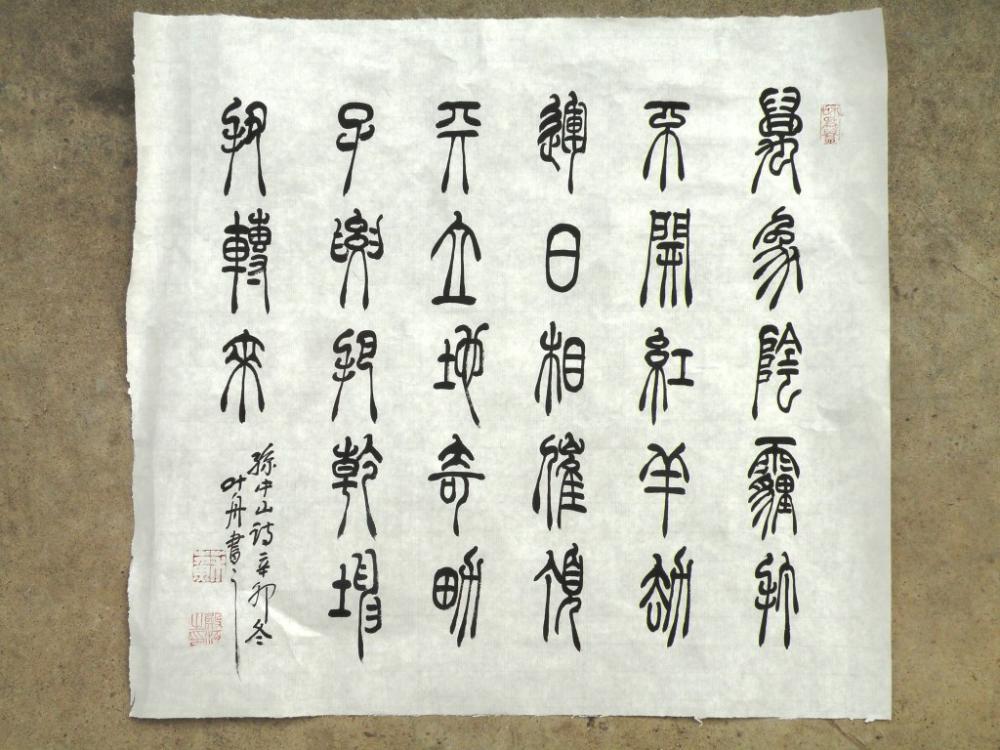 萬象陰霾扫
不開紅羊劫
運日相催頂
天立地奇男
子要把乾坤
扭轉來
孫中山詩辛卯冬
叶舟書